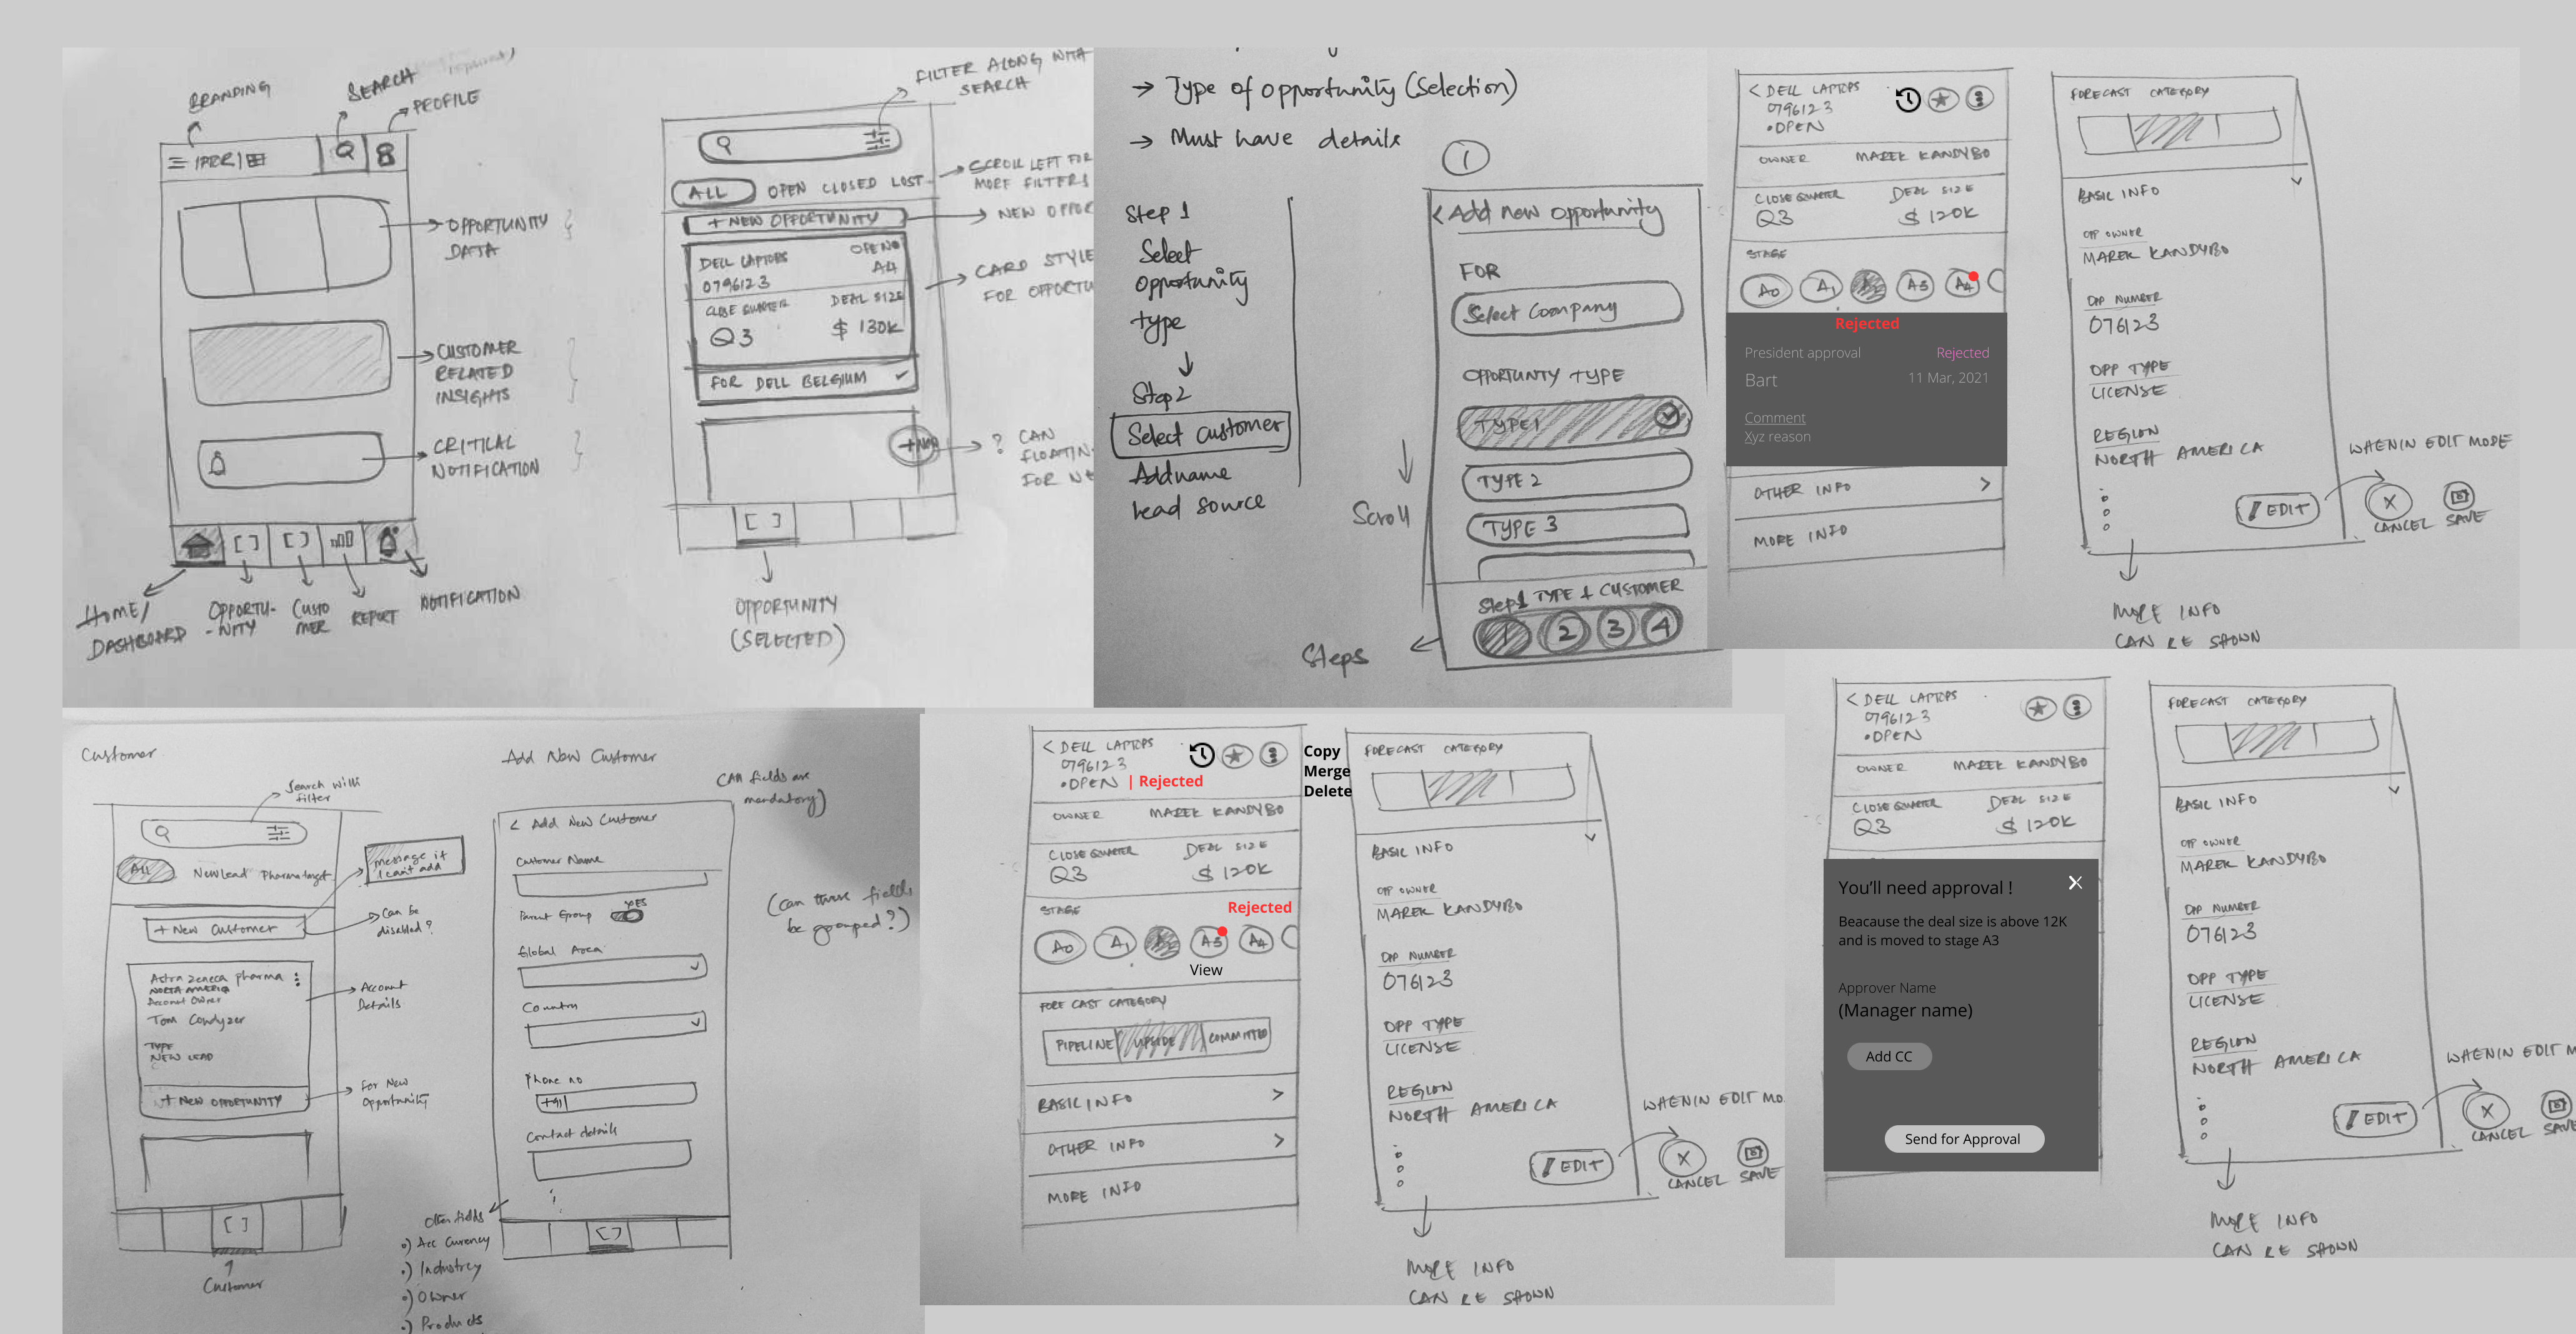 BRANDING
SEARCH
PROFILE
OPPORTUNITY
DATA
CUSTOMER
RELATED
INSIGHTS
CRITICAL
NOTIFICATION
HOME/
DASHBOARD
OPPORTU-
-NITY
CUSTO
MER
REPORT
NOTIFICATION
FILTER ALONG WITH
SEARCH
ALL OPEN CLOSED LOST
SCROLL LEFT FOR
MORE FILTERS
+ NEW OPPORTUNITY
NEW OPPOR
DELL LAPTOPS
079612 3
OPEN
A4
CLOSE QUARTER DEAL SIZE
Q3 $ 130K
FOR DELL BELGIUM
CARD STYLE
FOR OPPORTU
+NEW
? CAN
FLOATIN
FOR NE
OPPORTUNITY
(SELECTED)
→ Type of opportunity (Selection)
→ Must have details
Step 1
Select
Opportunity
type
Step2
Select customer
Addname
Lead source
1
< Add new opportunity
FOR
Select Company
OPPORTUNTY TYPE
TYPE1
TYPE 2
TYPE 3
Scroll
Step1 TYPE & CUSTOMER
1 2 3 4
Steps
< DELL LAPTOPS
079612 3
•OPEN
OWNER MAREK KANDYBO
CLOSE QUARTER DEAL SIZE
Q3 $ 120K
STAGE
A0 A1 A3 A4
Rejected
President approval Rejected
Bart 11 Mar, 2021
Comment
Xyz reason
OTHER INFO >
MORE INFO
FORECAST CATEGORY
BASIC INFO
OPP OWNER
MAREK KANDYBO
OPP NUMBER
076123
OPP TYPE
LICENSE
REGION
NORTH AMERICA
EDIT
WHENIN EDIT MODE
X
CANCEL SAVE
MORE INFO
CAN BE SHOWN
Customer
Search with
filter
All New Lead Pharma target
message if
I can't add
+ New Customer
Can be
disabled?
Astra Zeneca pharma
NORTH AMERICA
Account Owner
Tom Condyzer
TYPE
NEW LEAD
Account
Details
+ NEW OPPORTUNITY
For New
Opportunity
Customer
Add New Customer
(All fields are
mandatory)
< Add New Customer
Customer Name
Parent Group
YES
Global Area
Country
Phone no
+91
Contact details
(can these fields
be grouped?)
Other fields
•) Acc Currency
•) Industrey
•) Owner
•) Products
< DELL LAPTOPS
079612 3
•OPEN | Rejected
Copy
Merge
Delete
OWNER MAREK KANDYBO
CLOSE QUARTER DEAL SIZE
Q3 $ 120K
STAGE Rejected
A0 A1 A3 A4
View
FORE CAST CATEGORY
PIPELINE UPSIDE COMMITTED
BASIC INFO >
OTHER INFO >
MORE INFO
FORECAST CATEGORY
BASIC INFO
OPP OWNER
MAREK KANDYBO
OPP NUMBER
076123
OPP TYPE
LICENSE
REGION
NORTH AMERICA
EDIT
WHENIN EDIT MO
X
CANCEL SAVE
MORE INFO
CAN BE SHOWN
< DELL LAPTOPS
079612 3
•OPEN
OWNER MAREK KANDYBO
CLOSE QUARTER DEAL SIZE
Q3 $ 120K
You'll need approval !
X
Beacause the deal size is above 12K
and is moved to stage A3
Approver Name
(Manager name)
Add CC
Send for Approval
FORECAST CATEGORY
BASIC INFO
OPP OWNER
MAREK KANDYBO
OPP NUMBER
076123
OPP TYPE
LICENSE
REGION
NORTH AMERICA
EDIT
WHENIN EDIT M
X
CANCEL SAVE
MORE INFO
CAN BE SHOWN